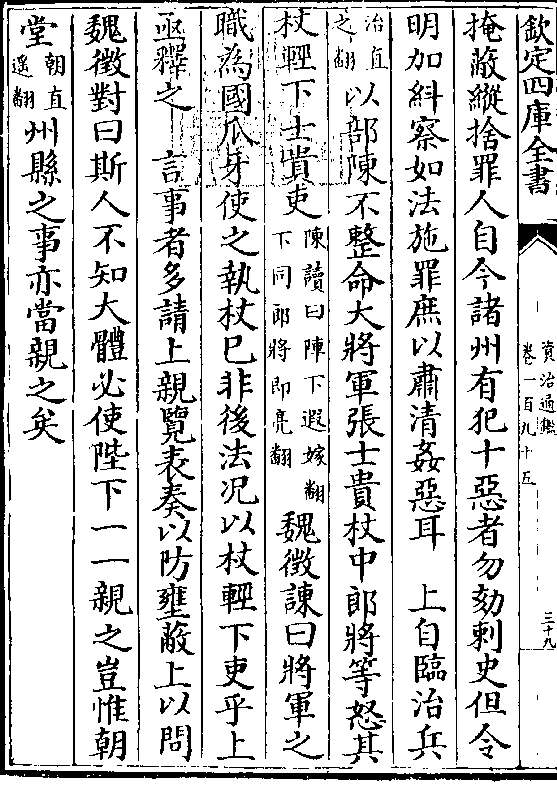 欽定四庫全書
資治通鑑
卷一百九十五
三十九
掩蔽縱捨罪人自今諸州有犯十惡者勿劾刺史但令
明加糾察如法施罪庶以肅清姦惡耳　上自臨治兵
治直
之翻
以部陳不整命大將軍張士貴杖中郎將等怒其
杖輕下士貴吏
陳讀曰陣下遐嫁翻
下同郎將即亮翻
魏徵諫曰將軍之
職為國爪牙使之執杖已非後法况以杖輕下吏乎上
亟釋之　言事者多請上親覽表奏以防壅蔽上以問
魏徵對曰斯人不知大體必使陛下一一親之豈惟朝
堂
朝直
遥翻
州縣之事亦當親之矣